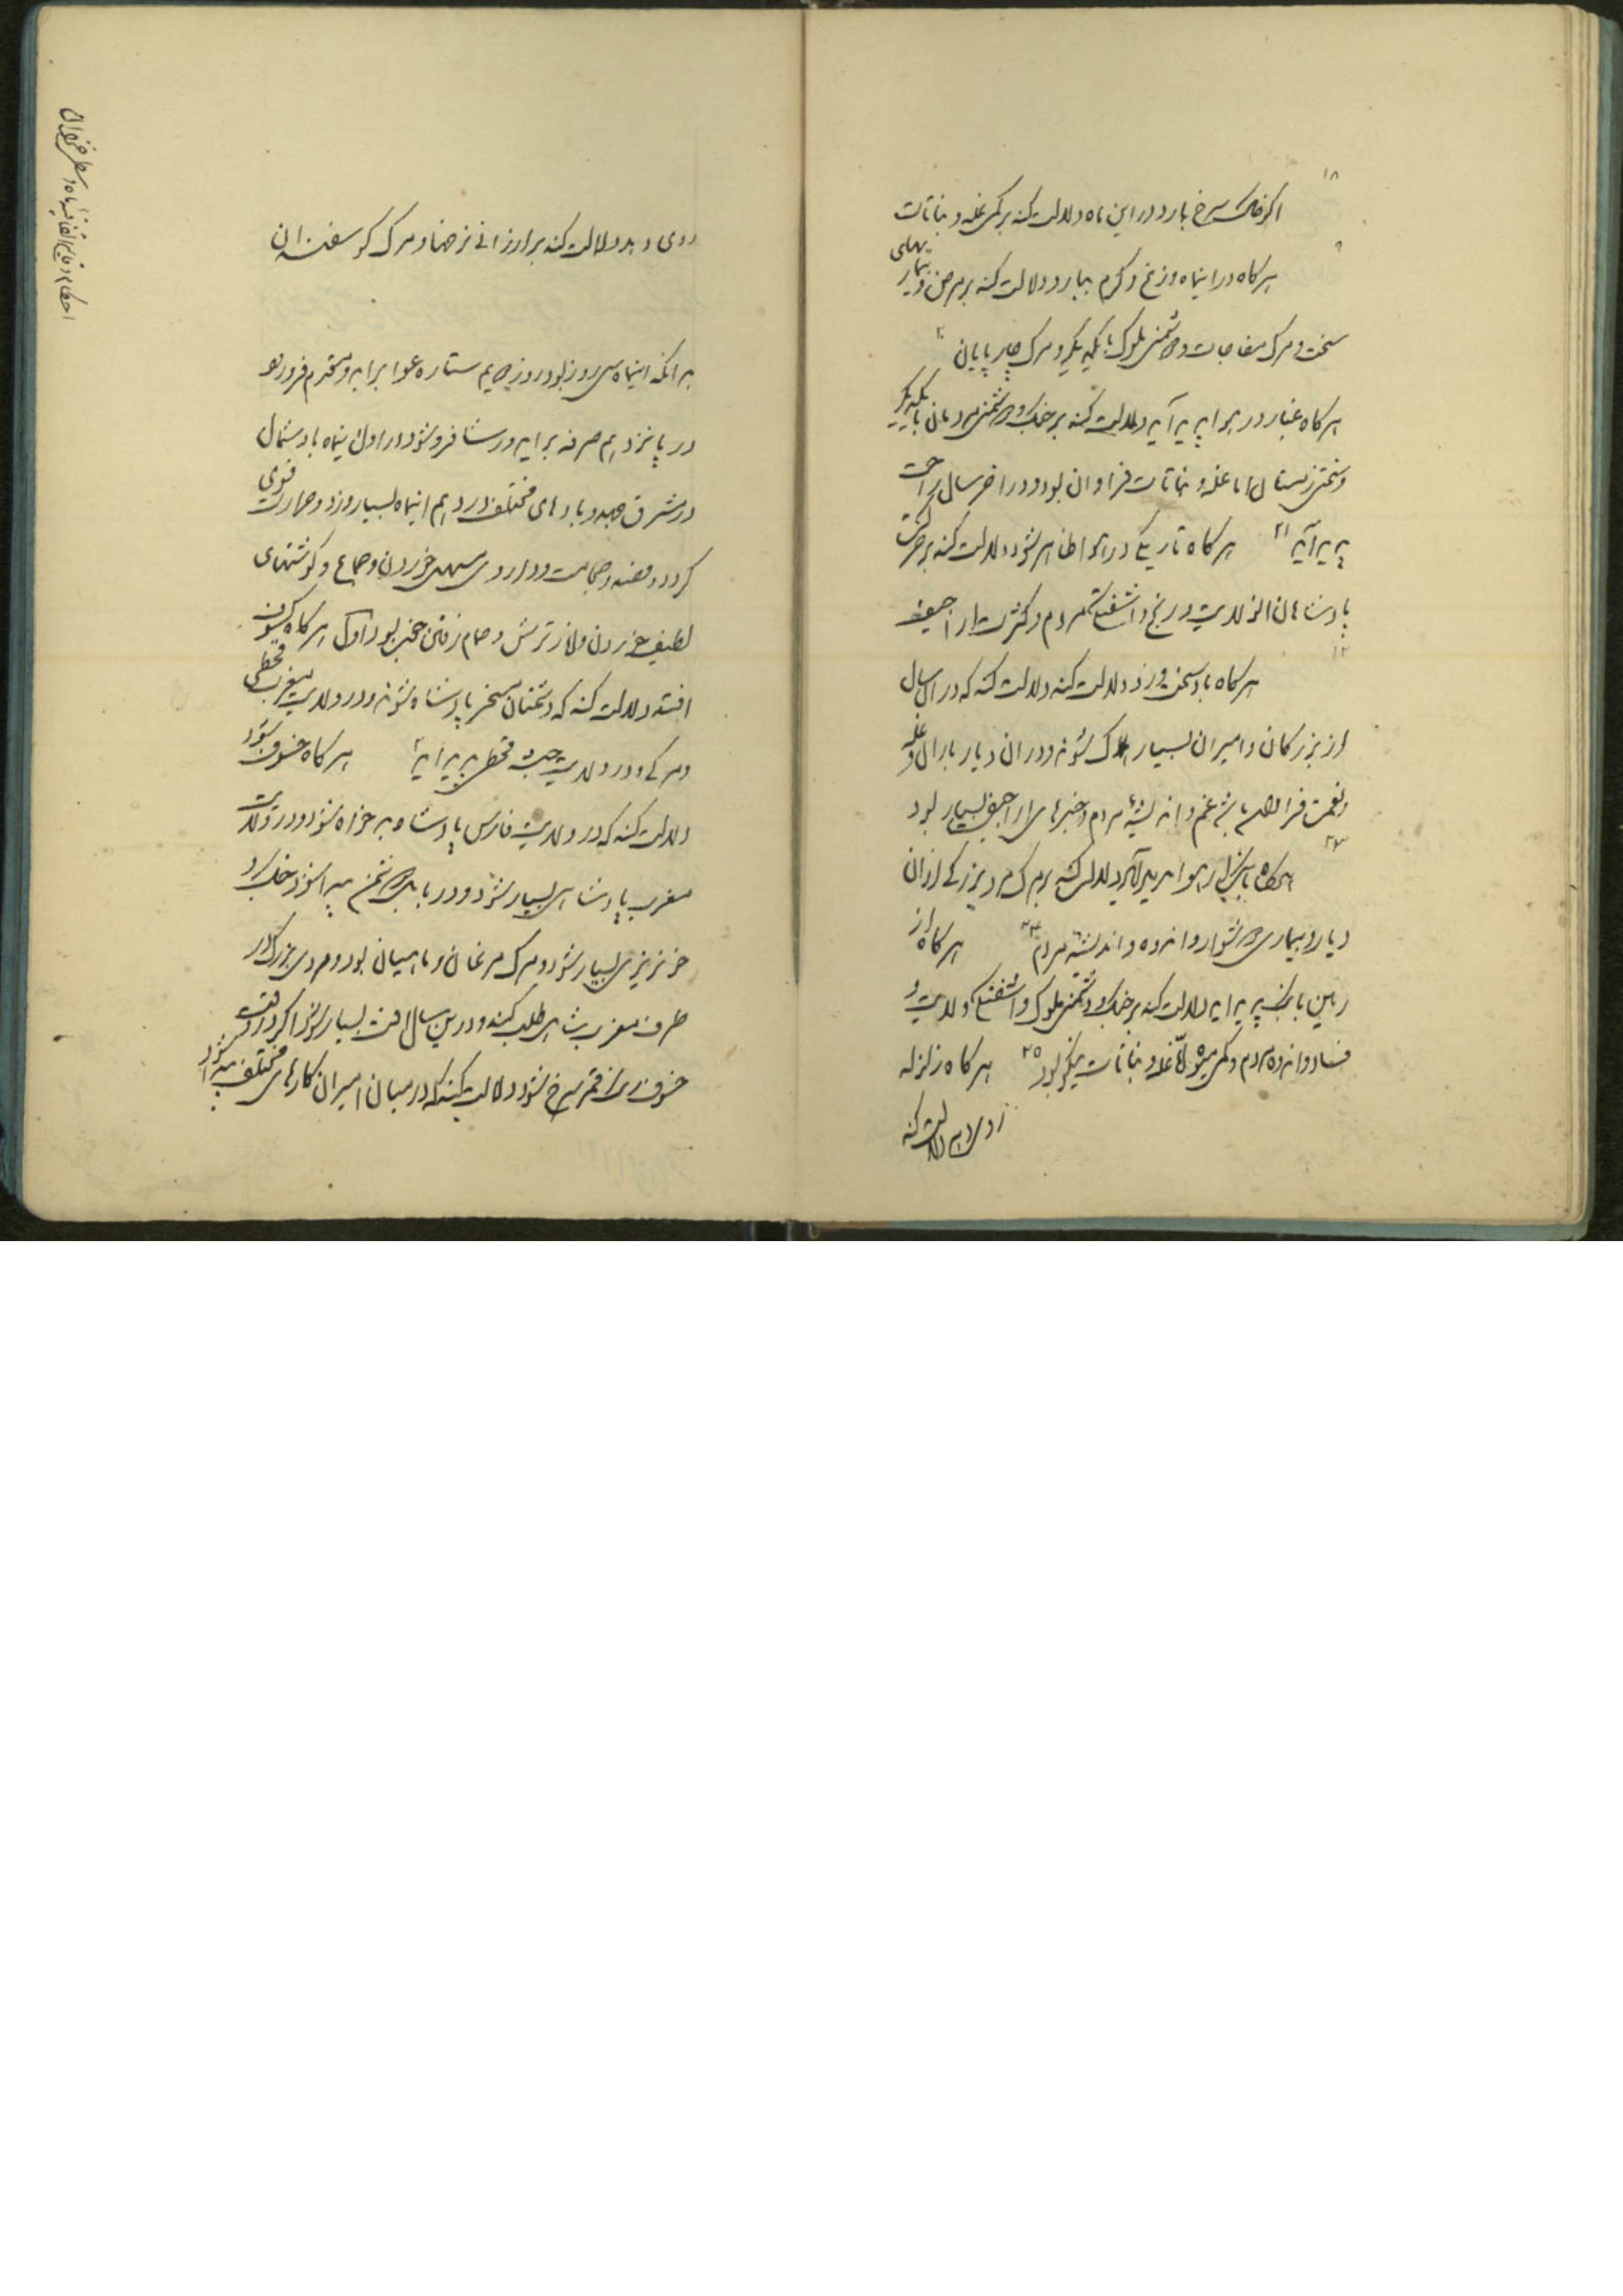 ۱۸
اکر خاک سرخ بارد در این ماه دلالت کند بر کمی غله و نباتات
هر کاه در اینماه وزغ و کرم ببارد دلالت کند بر مرض و بیماریهای
سخت و مرک مفاجات و دشمنی ملوک با یکدیکر و مرک چارپایان ۲۰
هر کاه غبار در هوا پدید آید دلالت کند بر جنک و دشمنی مردمان با یکدیکر
و سختی زمستان اما غله و نباتات فراوان بود و در اخر سال راحت
پدید آید ۲۱ هر کاه تاریکی در هوا ظاهر شود دلالت کند بر حرکت
پادشاهان از ولایت و رنج و اشفتکی مردم و کثرت اراجیف
هر کاه باد سخت وزد دلالت کند دلالت کند که در ان سال
از بزرکان و امیران بسیار هلاک شوند و در ان دیار باران و غله
و نعمت فراخ باشد غم و اندیشه مردم و خبرهای اراجیف بسیار بود
۲۳
هرکاه در هوا پدید آید دلالت کند بر مرک مرد بزرکی از ان
دیار و بیماری دشوار و اندوه و اندیشه مردم ۲۴ هر کاه از
زمین پدید اید دلالت کند بر جنک و دشمنی ملوک و اشفتکی ولایت و
فساد و اندوه مردم و کمی میوه امّا غله و نباتات نیکو بود ۲۵ هر کاه زلزله
روی دهد دلالت کند
روی دهد دلالت کند بر ارزانی نرخها و مرک کوسفندان
بدانکه اینماه سی روز بود روز چهارم ستاره عوا براید و مقدم فرو رود
در پانزدهم صرفه براید و رشا فرو شود در اول اینماه باد شمال
در مشرق جهد و بادهای مختلف در دهم اینماه بسیار وزد و حرارت قوی
کردد و فصد و حجامت و داروی مسهل خوردن و جماع و کوشتهای
لطیف خوردن و از ترش و حمام رفتن مجتنب بود اوّل هر کاه کسوف
افتد دلالت کند که دشمنان مسخر پادشاه شوند و در ولایت مغرب قحطی
و مرکی و در ولایت حبشه قحطی پدید اید ۲ هر کاه خسوف شود
دلالت کند که در ولایت فارس پادشاه بدخواه شود و در ولایت
مغرب پادشاهی بسیار شود و در بابل دشمن پیدا شود و جنک و
خونریزی بسیار شود و مرک مرغان و ماهیان بود و مردی بزرک در
طرف مغرب شاهی طلب کند و درین سال افت بسیار شود و اکر در وقت
خسوف رنک قمر سرخ شود دلالت کند که در میان امیران کارهای مختلف پیدا شود